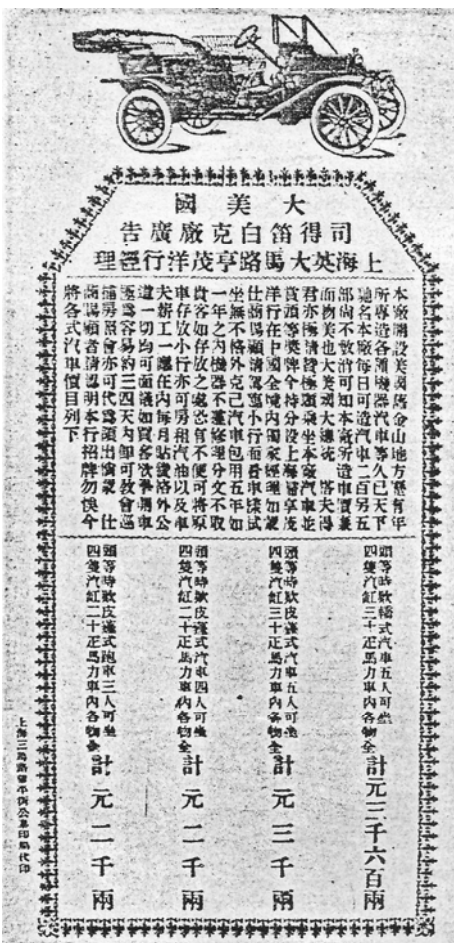 大美國
司得笛白克廠廣告
上海英大馬路亨茂洋行經理
本廠開設美國舊金山地方歷有年
所專造各種機器汽車等久已天下
馳名本廠每日可造汽車二百另五
部尚不敷消可知本廠所造車實
而物美也大美國大總統 塔夫得
君亦極讚賞極願乘坐本廠汽車並
賞頭等獎牌今特分設上海歸亨茂
洋行在中國全境內獨家經理如蒙
仕商賜顧請駕臨小行面看車樣試
坐無不格外克己汽車包用五年如
一年之內機器不靈修理分文不取
貴客如存放之處恐有不便可將原
車存放小行亦可房租汽油以及車
夫薪工一應在內每月貼費格外公
道一切均可面議如貴客欲學開車
極為容易約三四天內卽可教會巡
捕房照會亦可代為領出倘蒙 仕
商賜顧者請認明本行招牌勿悞今
將各式汽車價目列下
頭等時欵轎式汽車五人可坐
四隻汽缸三十正馬力車內各物全
計元三千六百兩
頭等時欵皮篷式汽車五人可坐
四隻汽缸三十正馬力車內各物全
計元三千兩
頭等時欵皮篷式汽車四人可坐
四隻汽缸二十正馬力車內各物全
計元二千兩
頭等時欵皮篷式跑車三人可坐
四隻汽缸二十正馬力車內各物全
計元二千兩
上海三馬路望平街公印局代印